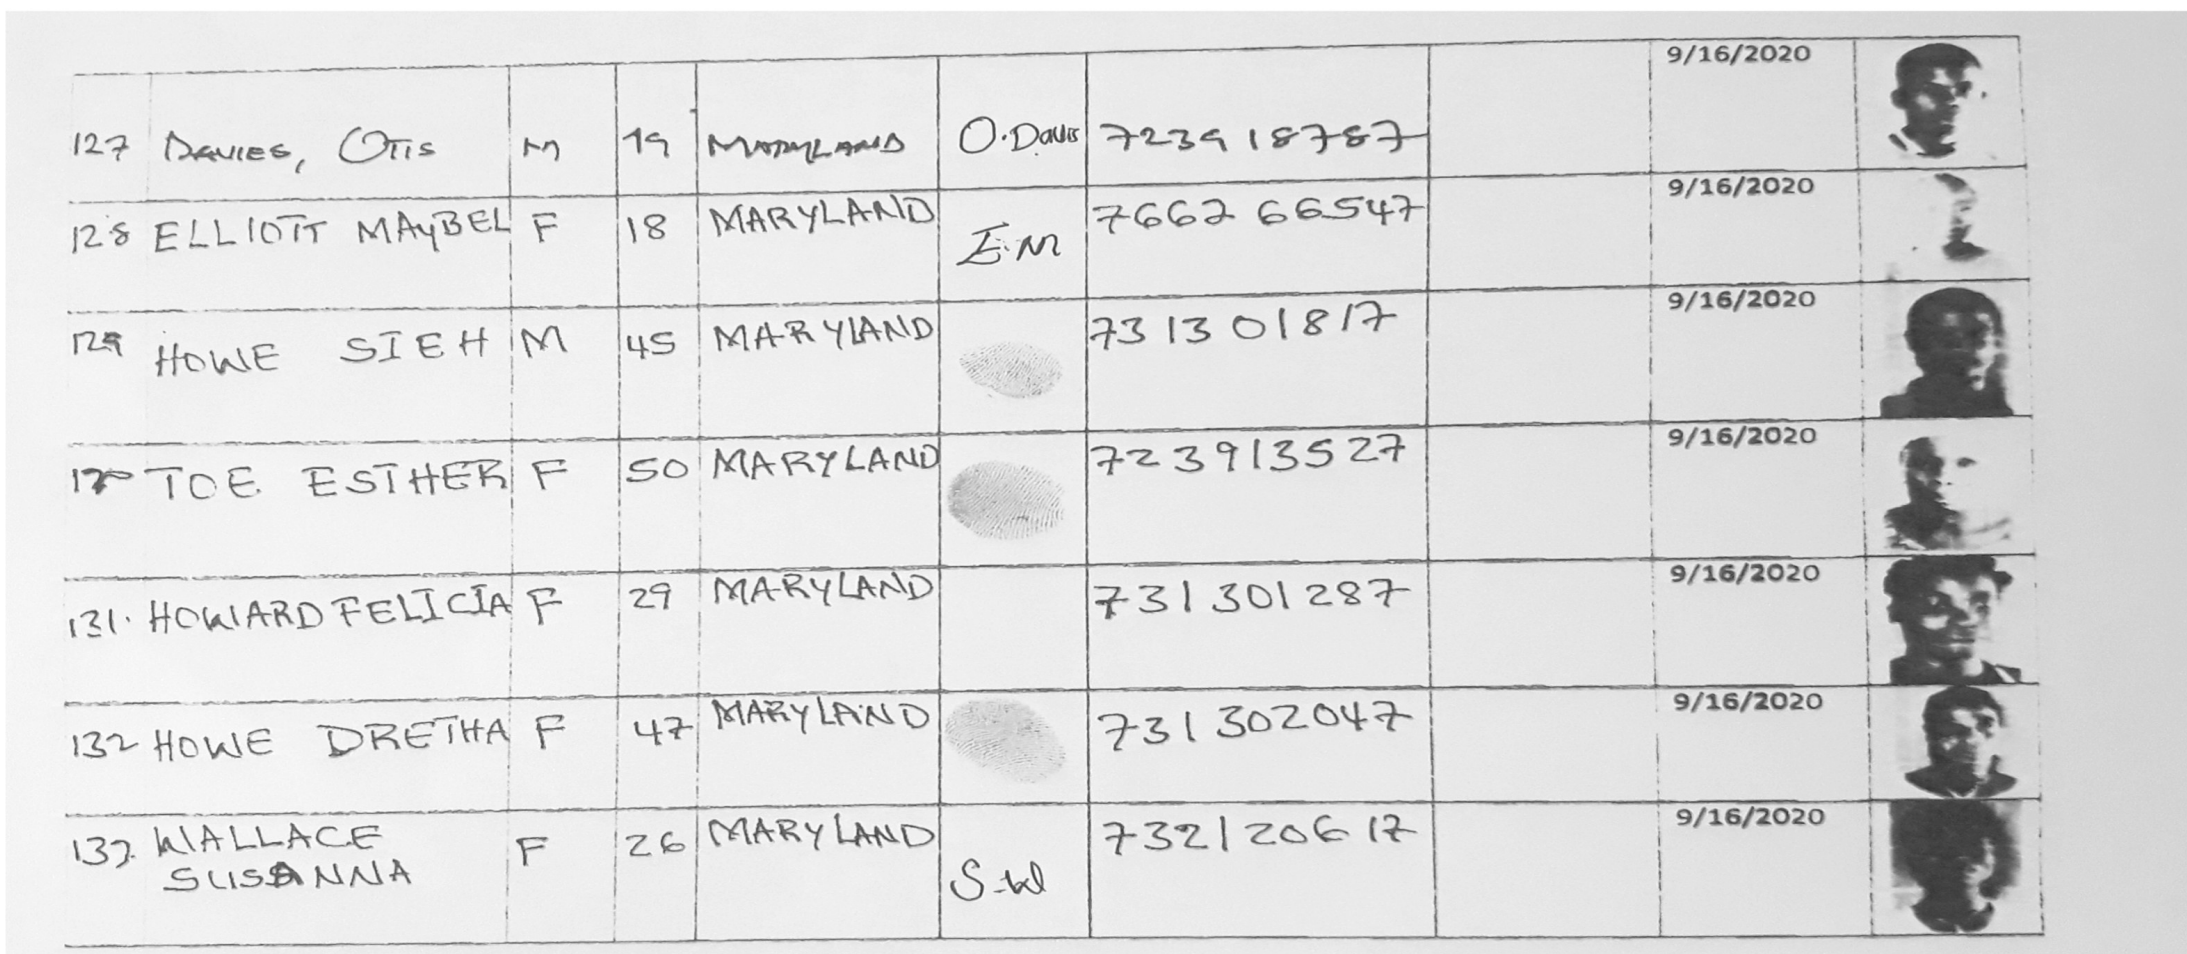 9/16/2020
127 DAVIES, OTIS M 19 MARYLAND O.Davis 7239 18787
9/16/2020
128 ELLIOTT MAYBEL F 18 MARYLAND E.M 7662 66547
9/16/2020
129 HOWE SIEH M 45 MARYLAND 73 13 01817
9/16/2020
TOE ESTHER F 50 MARYLAND 723913527
9/16/2020
131. HOWARD FELICIA F 29 MARYLAND 731301287
9/16/2020
132 HOWE DRETHA F 47 MARYLAND 731302047
9/16/2020
133. WALLACE F 26 MARYLAND 732120617
SUSANNA S.W